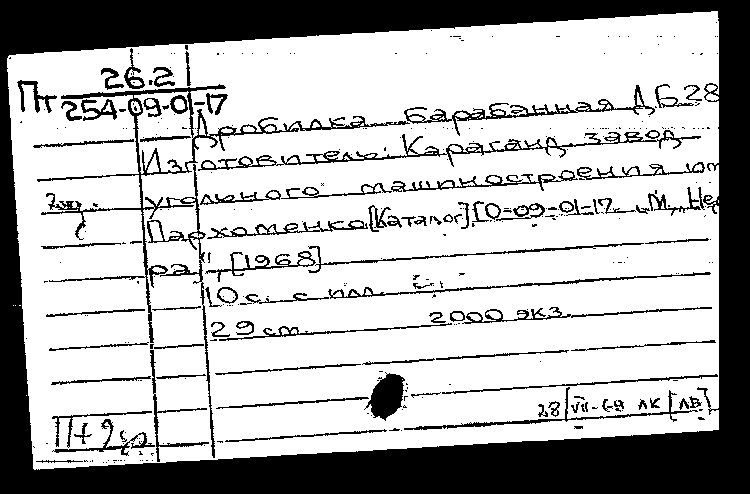 Пт 26.2
254-09-01-17
Дробилка барабанная ДБ28
Изготовитель: Караганд. завод
угольного машиностроения им
Пархоменко [Каталог] [0-09-01-17. „М, Нед
ра", [1968]
10 с. с илл.
29 см. 2000 экз.
28/VII-68 ЛК [ЛВ]